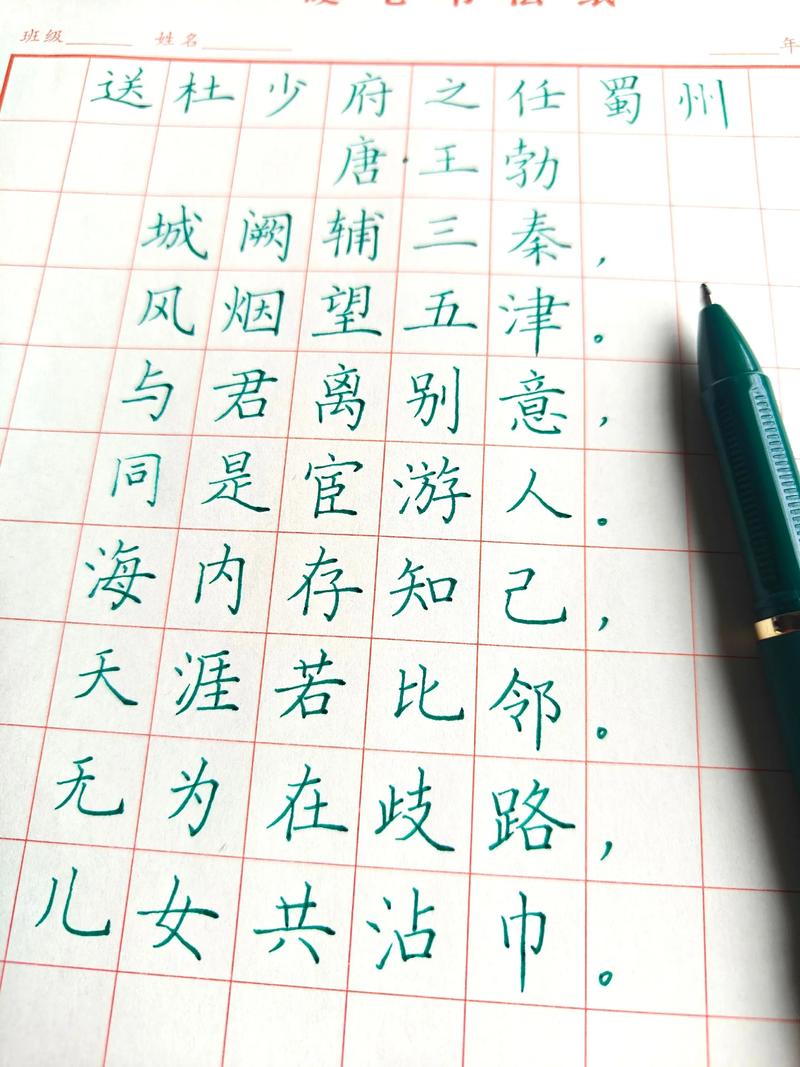 硬笔书法纸
班级 姓名 年
送杜少府之任蜀州
唐·王勃
城阙辅三秦，
风烟望五津。
与君离别意，
同是宦游人。
海内存知己，
天涯若比邻。
无为在歧路，
儿女共沾巾。